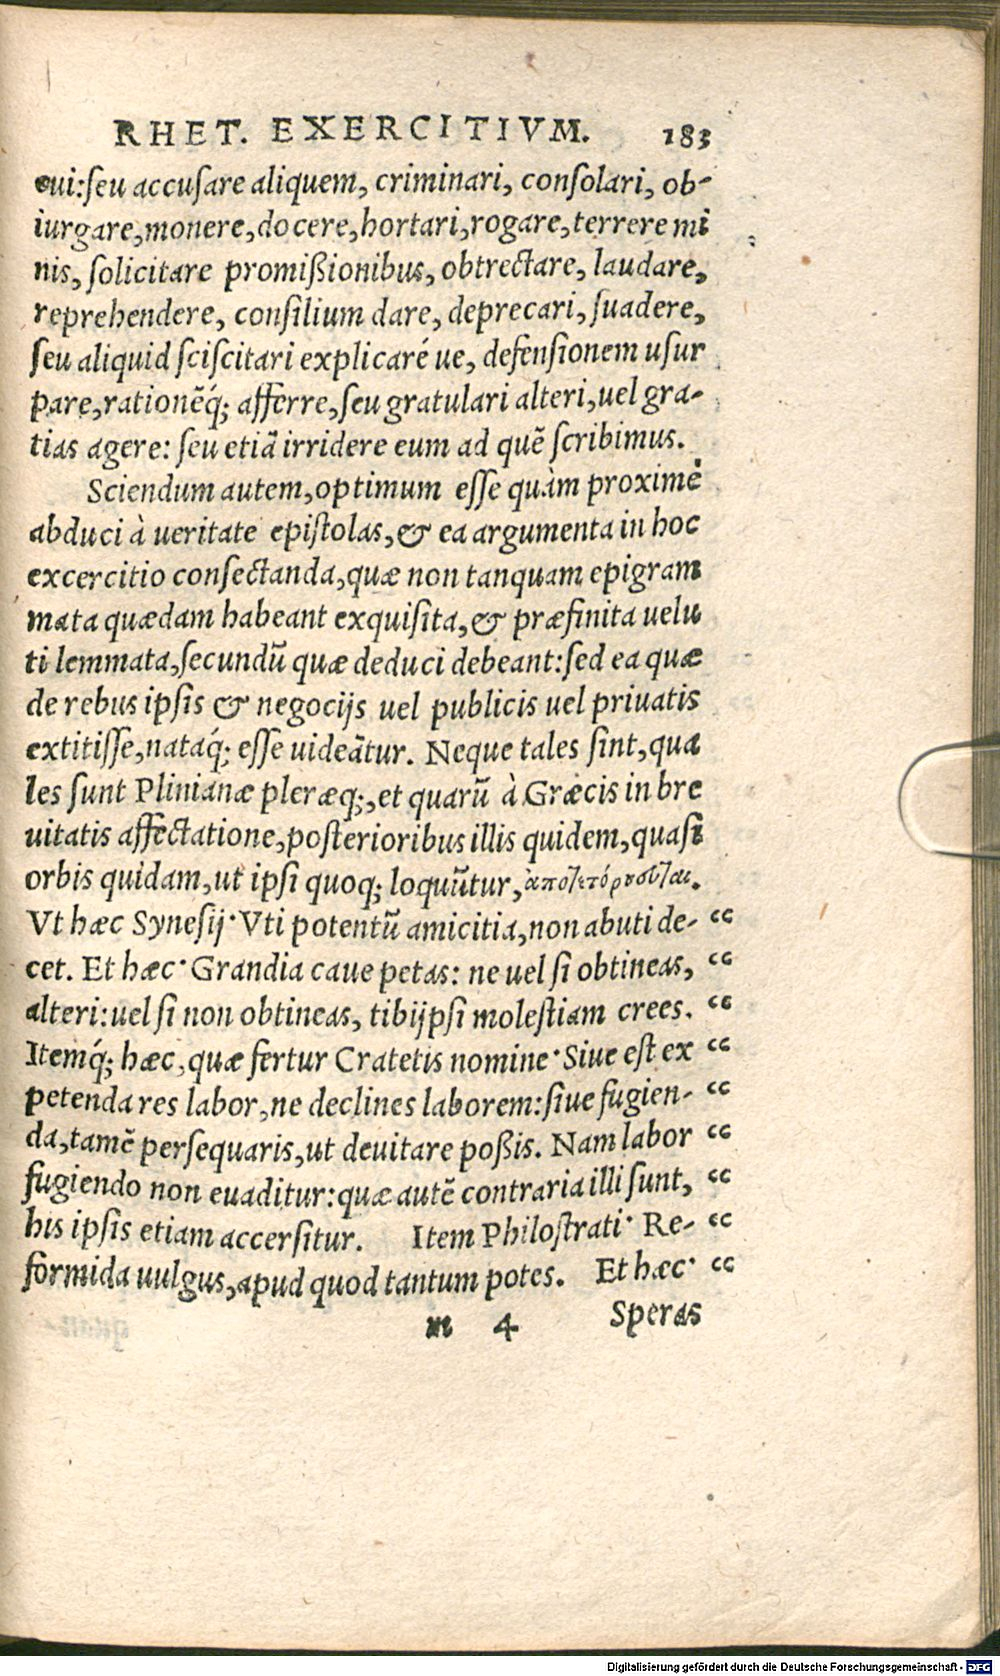 RHET. EXERCITIVM. 183
cui:ſeu accuſare aliquem, criminari, conſolari, ob-
iurgare,monere,docere,hortari,rogare,terrere mi
nis, ſolicitare promißionibus, obtrectare, laudare,
reprehendere, conſilium dare, deprecari, ſuadere,
ſeu aliquid ſciſcitari explicaré ue, defenſionem uſur
pare,rationẽq́; afferre,ſeu gratulari alteri,uel gra-
tias agere: ſeu etiã irridere eum ad quẽ ſcribimus.
Sciendum autem,optimum eſſe quàm proximè
abduci à ueritate epiſtolas,& ea argumenta in hoc
excercitio conſectanda,quæ non tanquam epigram
mata quædam habeant exquiſita,& præfinita uelu
ti lemmata,ſecundũ quæ deduci debeant:ſed ea quæ
de rebus ipſis & negocijs uel publicis uel priuatis
extitiſſe,nataq́; eſſe uideãtur. Neque tales ſint,qua
les ſunt Plinianæ pleræq;,et quarũ à Græcis in bre
uitatis affectatione,poſterioribus illis quidem,quaſi
orbis quidam,ut ipſi quoq; loquũtur,
Vt hæc Syneſij· Vti potentũ amicitia,non abuti de- “
cet. Et hæc· Grandia caue petas: ne uel ſi obtineas, “
alteri:uel ſi non obtineas, tibijpſi moleſtiam crees. “
Itemq́; hæc,quæ fertur Cratetis nomine· Siue eſt ex “
petenda res labor,ne declines laborem:ſiue fugien- “
da,tamẽ perſequaris,ut deuitare poßis. Nam labor “
fugiendo non euaditur:quæ autẽ contraria illi ſunt, “
his ipſis etiam accerſitur. Item Philoſtrati· Re- “
formida uulgus,apud quod tantum potes. Et hæc· “
m 4 Speras
Digitalisierung gefördert durch die Deutsche Forschungsgemeinschaft - DFG